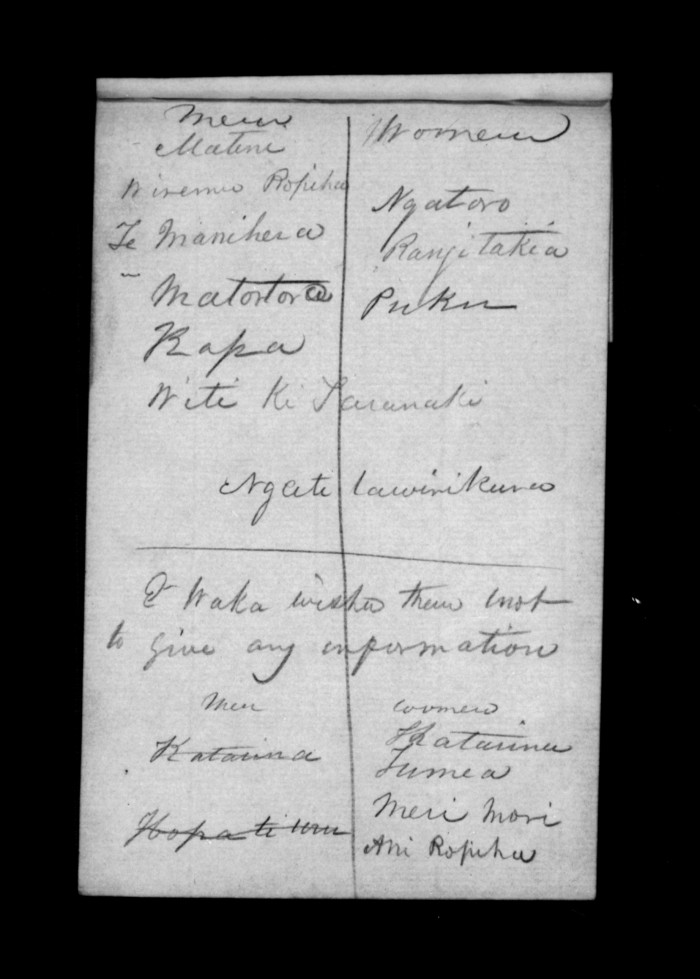 Men
Women
Matene
Wiremu Ropiha
Ngatoro
Te Manihera
Rangitakia
Matortora
Puku
Rapa
Witi Ki Taranaki
Ngati tawirikura
E Waka wishes them not
to give any information
Men
women
Katarina
Katarina
Tumea
Meri Mori
Hopa ti
Ani Ropiha